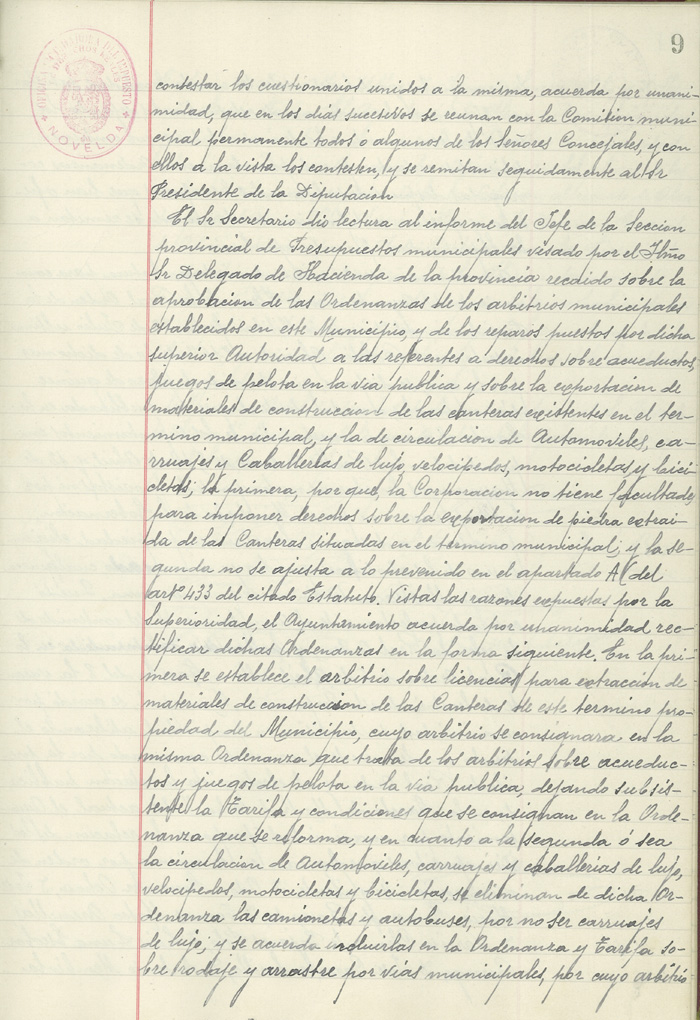 9
NOVELDA
contestar los cuestionarios unidos a la misma, acuerda por unani-
midad, que en los dias sucesivos se reunan con la Comision muni-
cipal permanente todos ó algunos de los Señores Concejales, y con
ellos a la vista los contesten, y se remitan seguidamente al Sr
Presidente de la Diputacion
El Sr Secretario dio lectura al informe del Jefe de la Seccion
provincial de Presupuestos municipales visado por el Ilmo
Sr Delegado de Hacienda de la provincia recaido sobre la
aprobacion de las Ordenanzas de los arbitrios municipales
establecidos en este Municipio, y de los reparos puestos por dicha
superior Autoridad a las referentes a derechos sobre acueductos,
juegos de pelota en la via publica y sobre la exportacion de
materiales de construccion de las canteras existentes en el ter-
mino municipal, y la de circulacion de Automoviles, ca-
rruajes y Caballerias de lujo, velocipedos, motocicletas y bici
cletas; la primera, por que, la Corporacion no tiene facultades
para imponer derechos sobre la exportacion de piedra extrai-
da de las Canteras situadas en el termino municipal; y la se-
gunda no se ajusta a lo prevenido en el apartado A( del
artº 433 del citado Estatuto. Vistas las razones expuestas por la
Superioridad, el Ayuntamiento acuerda por unanimidad rec-
tificar dichas Ordenanzas en la forma siguiente. En la pri-
mera se establece el arbitrio sobre licencias para extraccion de
materiales de construccion de las Canteras de este termino pro-
piedad del Municipio, cuyo arbitrio se consignara en la
misma Ordenanza que trata de los arbitrios sobre acueduc-
tos y juegos de pelota en la via publica, dejando subsis-
tente la Tarifa y condiciones que se consignan en la Orde-
nanza que se reforma, y en cuanto a la segunda ó sea
la circulacion de Automoviles, carruajes y caballerias de lujo,
velocipedos, motocicletas y bicicletas, se eliminan de dicha Or-
denanza las camionetas y autobuses, por no ser carruajes
de lujo; y se acuerda incluirlas en la Ordenanza y Tarifa so-
bre rodaje y arrastre por vias municipales, por cuyo arbitrio